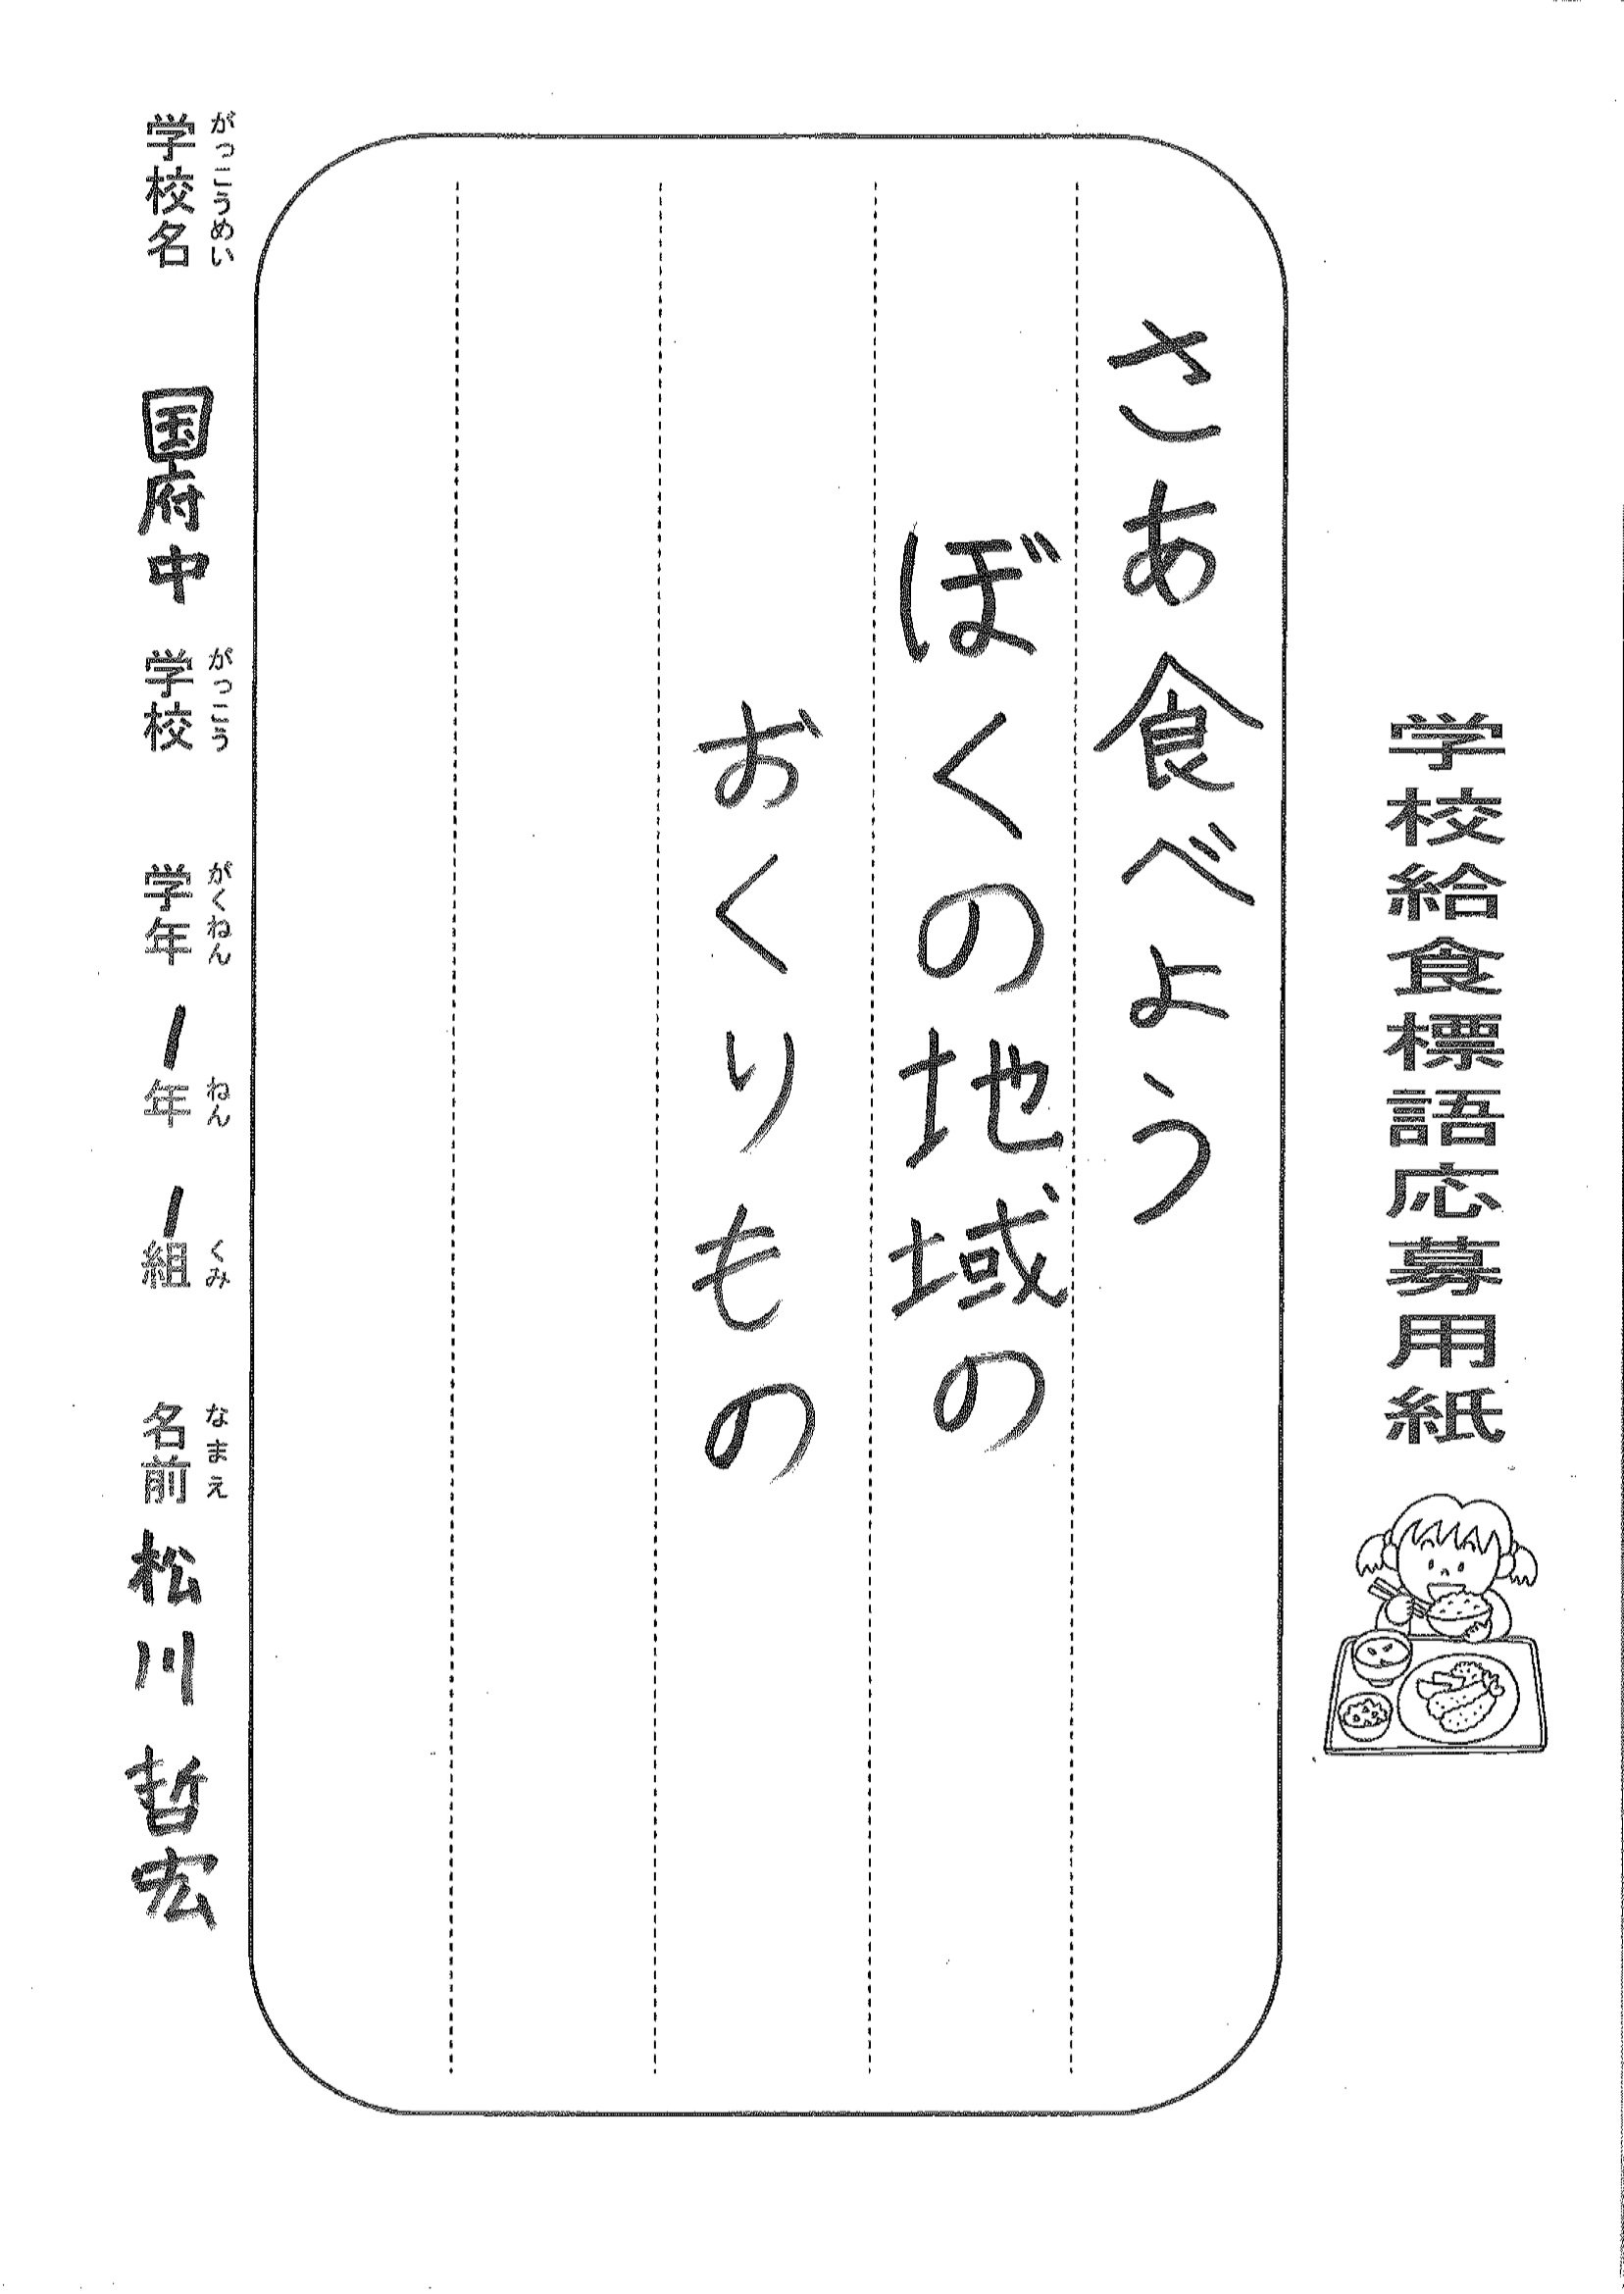 学校給食標語応募用紙
さあ食べよう
ぼくの地域の
おくりもの
がっこうめい がっこう がくねん ねん くみ なまえ
学校名 国府中 学校 学年 1年 1組 名前 松川 哲宏